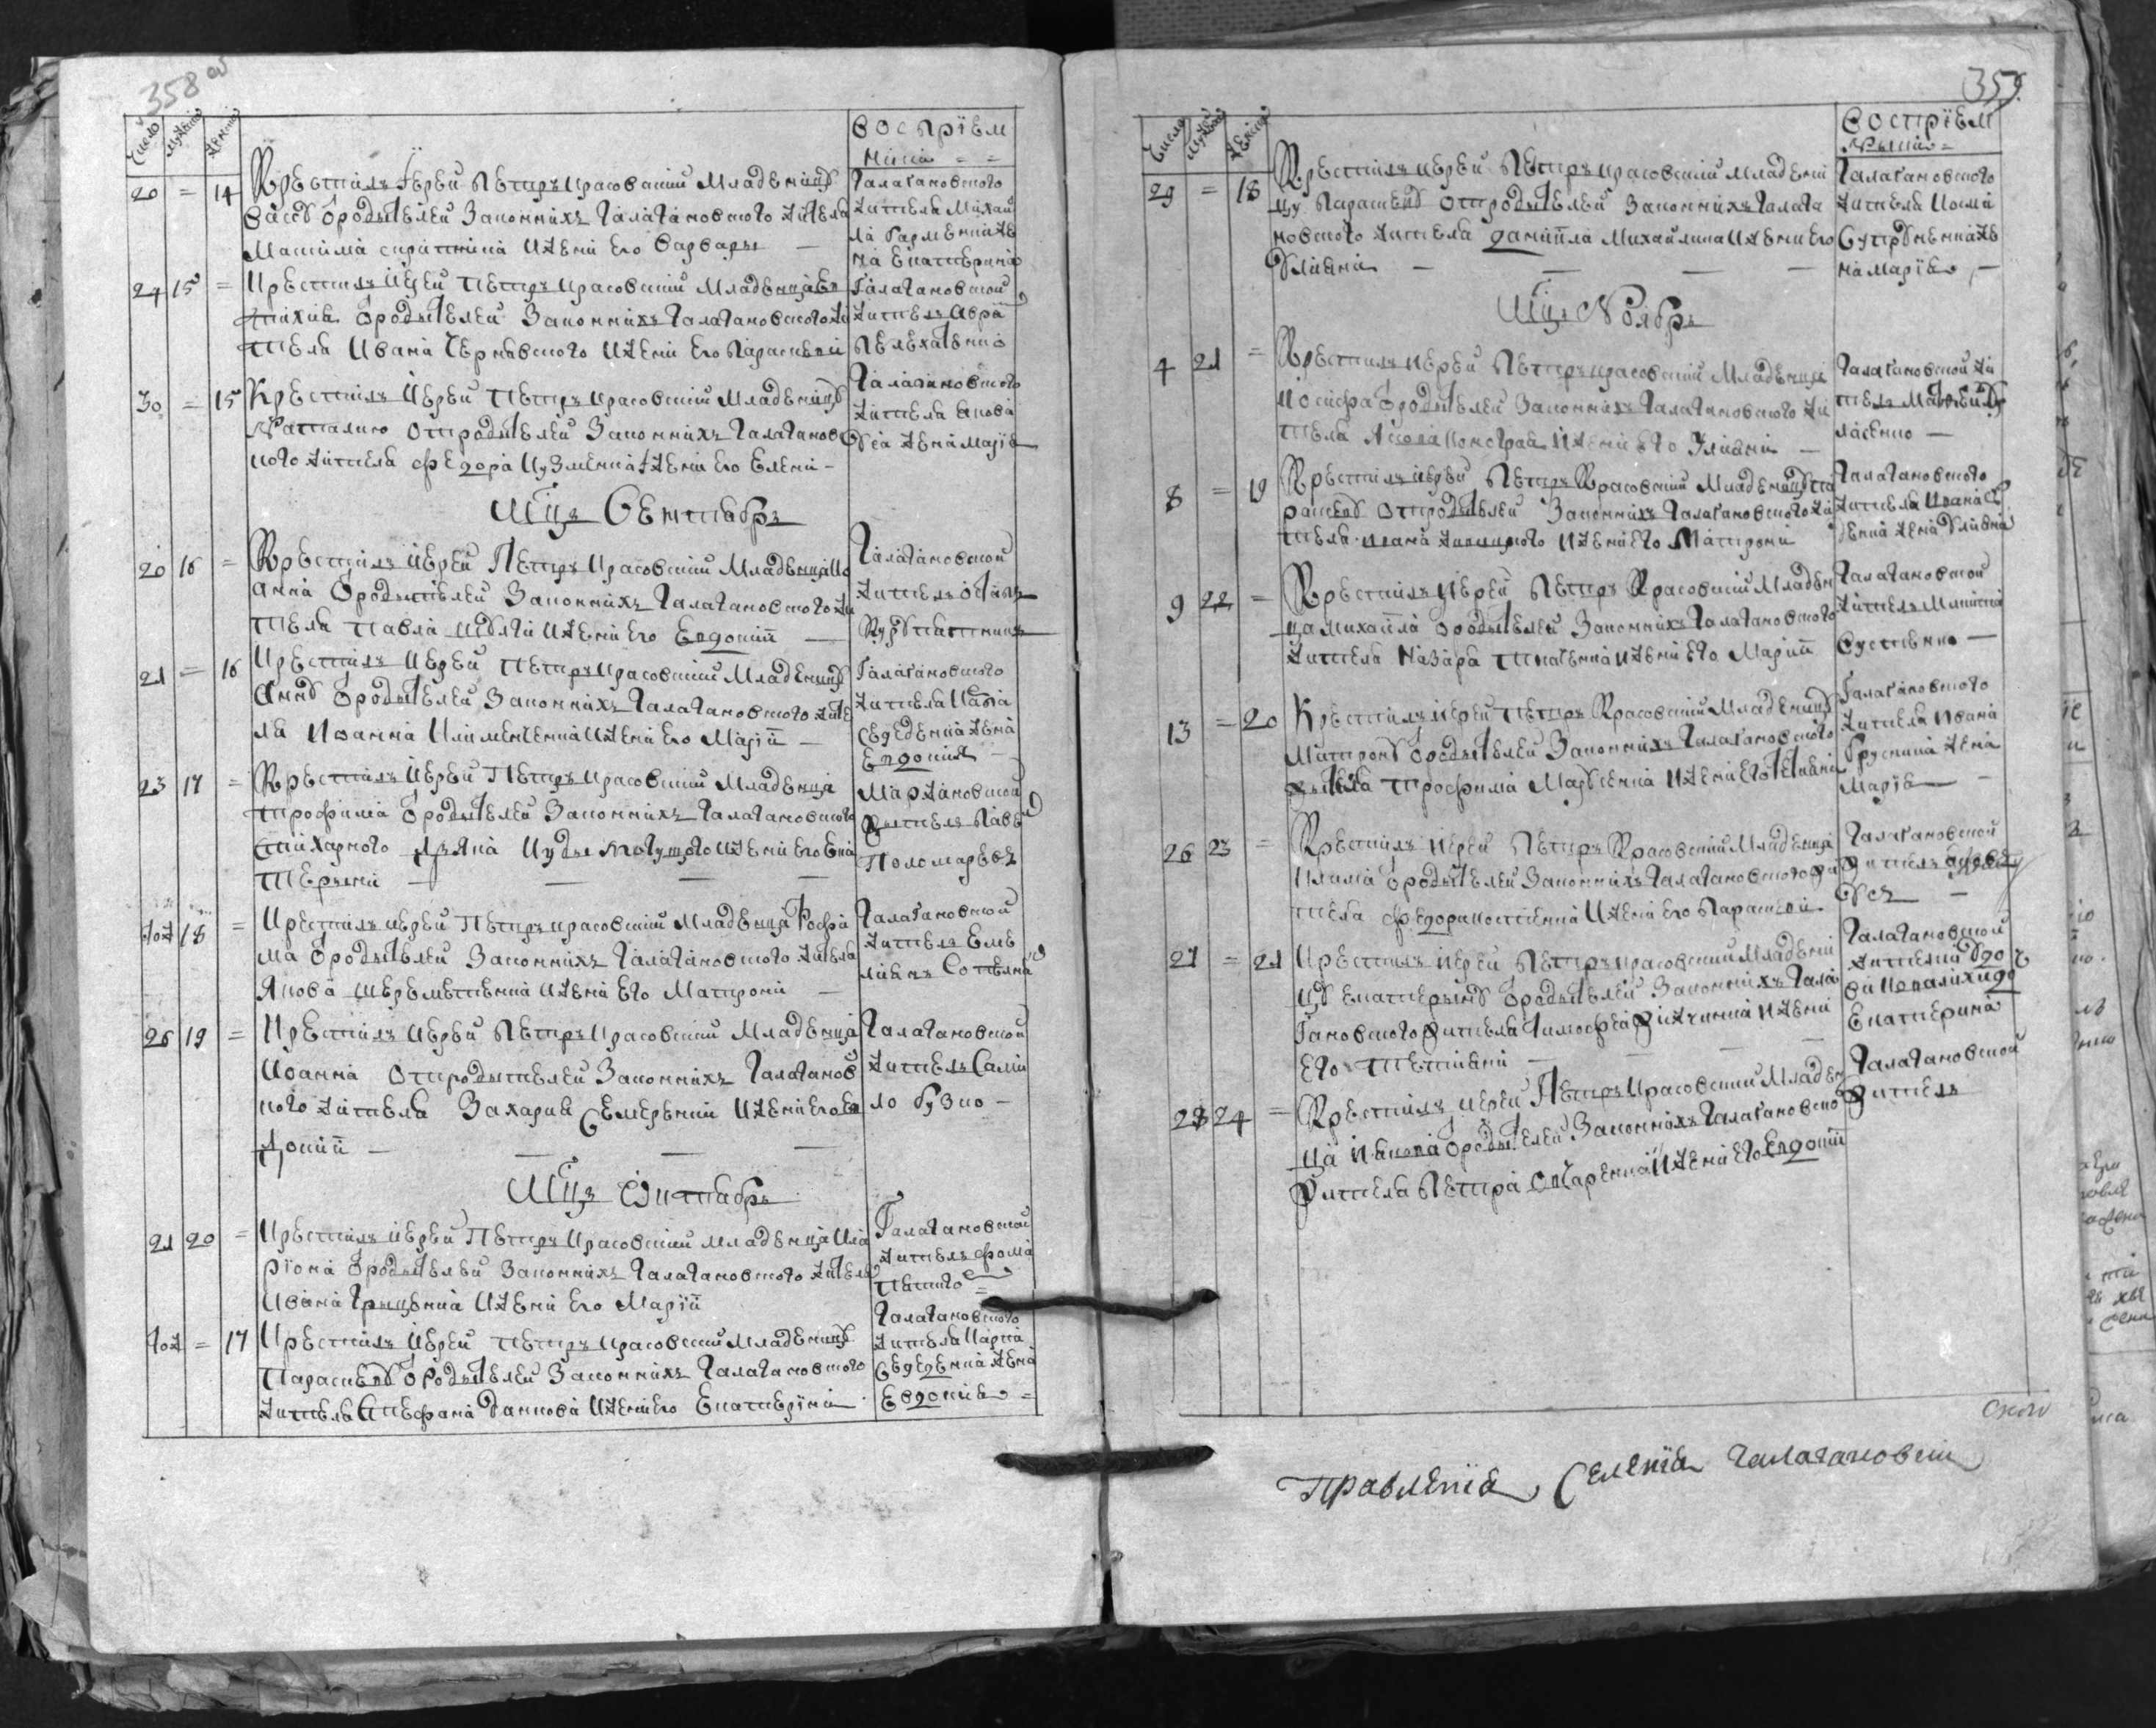 358 об
Число Мужеска Женска
Восприем
ники
20 = 14 Крестилъ Іерей Петръ Красовскій Младенцу
Вассу ѿродителей Законнихъ Галагановского жителя
Максима скрипника И жени его Варвары —
Галагановского
жителя Михаи
ла Гарменка же
на Екатерина
24 15 = Крестилъ Іерей Петръ Красовскій Младенца Ев
тихия ѿродителей Законнихъ Галагановского жи
теля Ивана Чернявского И жени его Параскевіи
Галагановской
житель Аврам
Пелехатенко
30 = 15 Крестилъ Іерей Петръ Красовскій Младенцу
Наталию отродителей Законнихъ Галагановс
кого жителя Федора Кузменка И жени его Елени -
Галагановского
жителя Якова
жена Марія
Мцъ Сентябрь
20 16 = Крестилъ Іерей Петръ Красовскій Младенца Ио
анна ѿродителей Законнихъ Галагановского жи
теля Павла Шуляги И жени его Евдокіи —
Галагановской
житель Остапъ
21 = 16 Крестилъ Іерей Петръ Красовскій Младенцу
Анну ѿродителей Законнихъ Галагановского жите
ля Иоанна Клименченка И жени его Маріи —
Галагановского
жителя
Середенка жена
Евдокия
23 17 = Крестилъ Іерей Петръ Красовскій Младенца
Трофима ѿродителей Законнихъ Галагановского
Екa
терини — — — —
Маржановской
житель Паве
Поломаревъ
тож 18 = Крестилъ Іерей Петръ Красовскій Младенца Трофи
ма ѿродителей Законнихъ Галагановского жителя
Якова Шереметенка И жени Его Матрони —
Галагановской
житель Еме
лианъ
26 19 = Крестилъ Іерей Петръ Красовскій Младенца
Иоанна Отродителей Законнихъ Галагановс
кого жителя Захария Семеренки И жени его Ев
докіи — — — —
Галагановской
житель Самій
ло Гузко —
Мцъ Октябрь
21 20 = Крестилъ Іерей Петръ Красовскій Младенца Ила
ріона ѿродителей Законнихъ Галагановского жителя
Ивана Грыценка И жени Его Маріи
Галагановской
житель Фома
тож = 17 Крестилъ Іерей Петръ Красовскій Младенцу
Параскеву ѿродителей Законнихъ Галагановского
жителя Стефана Данкова И жени его Екатерини
Галагановского
жителя Карпа
Середенка жена
Евдокия =
359
Число Мужеска Женска
Восприем
ники =
29 = 18 Крестилъ Іерей Петръ Красовскій Младени
цу Параскеву Отродителей Законнихъ Галага
новского жителя Даниила Михайлика И жени его
Улияни — — — —
Галагановского
жителя Кома
Супруненка же
на Мария —
Мцъ Ноябрь
4 21 = Крестилъ Іерей Петръ Красовскій Младенца
Иосифа ѿродителей Законнихъ Галагановского жи
теля И жени Его Улияни —
Галагановской жи
тель Матвей
ласенко —
8 = 19 Крестилъ Іерей Петръ Красовскій Младенцу Па
раскеву Отродителей Законнихъ Галагановского жи
теля Ивана И жени Его Матрони
Галагановского
жителя Ивана
денка жена Улияна
9 22 = Крестилъ Іерей Петръ Красовскій Младен
ца Михаила ѿродителей Законнихъ Галагановского
жителя Назара Ткаченка И жени Его Маріи
Галагановской
житель Микита
Сустенко —
13 = 20 Крестилъ Іерей Петръ Красовскій Младенцу
Матрону ѿродителей Законнихъ Галагановского
жителя Трофима Марусенка И жени Его Тетяни
Галагановского
жителя Ивана
Брускина жена
Мария —
26 23 = Крестилъ Іерей Петръ Красовскій Младенца
Клима ѿродителей Законнихъ Галагановского жи
теля Федора Костенка И жени Его Параскевіи
Галагановской
житель Яковъ
27 = 21 Крестилъ Іерей Петръ Красовскій Младени
цу Екатерину ѿродителей Законнихъ Гала
гановского жителя Тимофея И жени
Его Тетияни — — —
Галагановской
жителки Удо
ви
Екатерина
28 24 = Крестилъ Іерей Петръ Красовскій Младен
ца Иакова ѿродителей Законнихъ Галагановско
жителя Петра И жени Его Евдокіи
Галагановской
житель
Правления Селения Галагановки